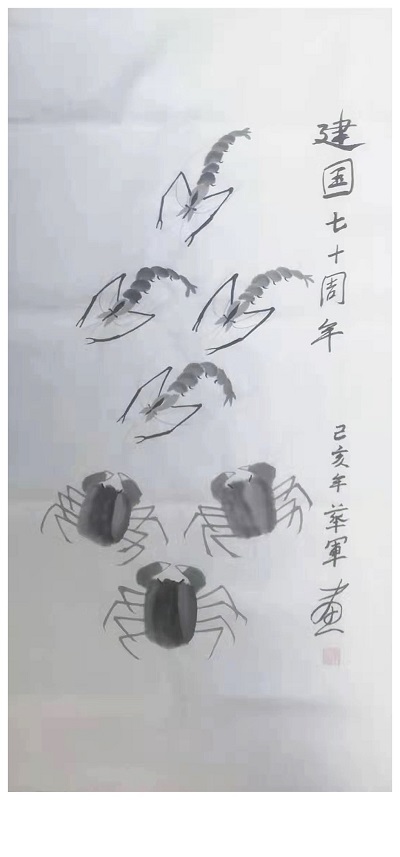 建国七十周年
己亥年華軍画